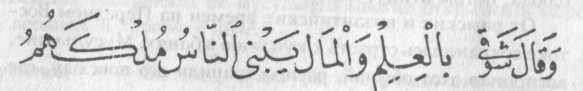 وَقَالَ شَوْقِي بِالْعِلْمِ وَالْمَالِ يَبْنِى ٱلنَّاسُ مُلْكَهُمُ